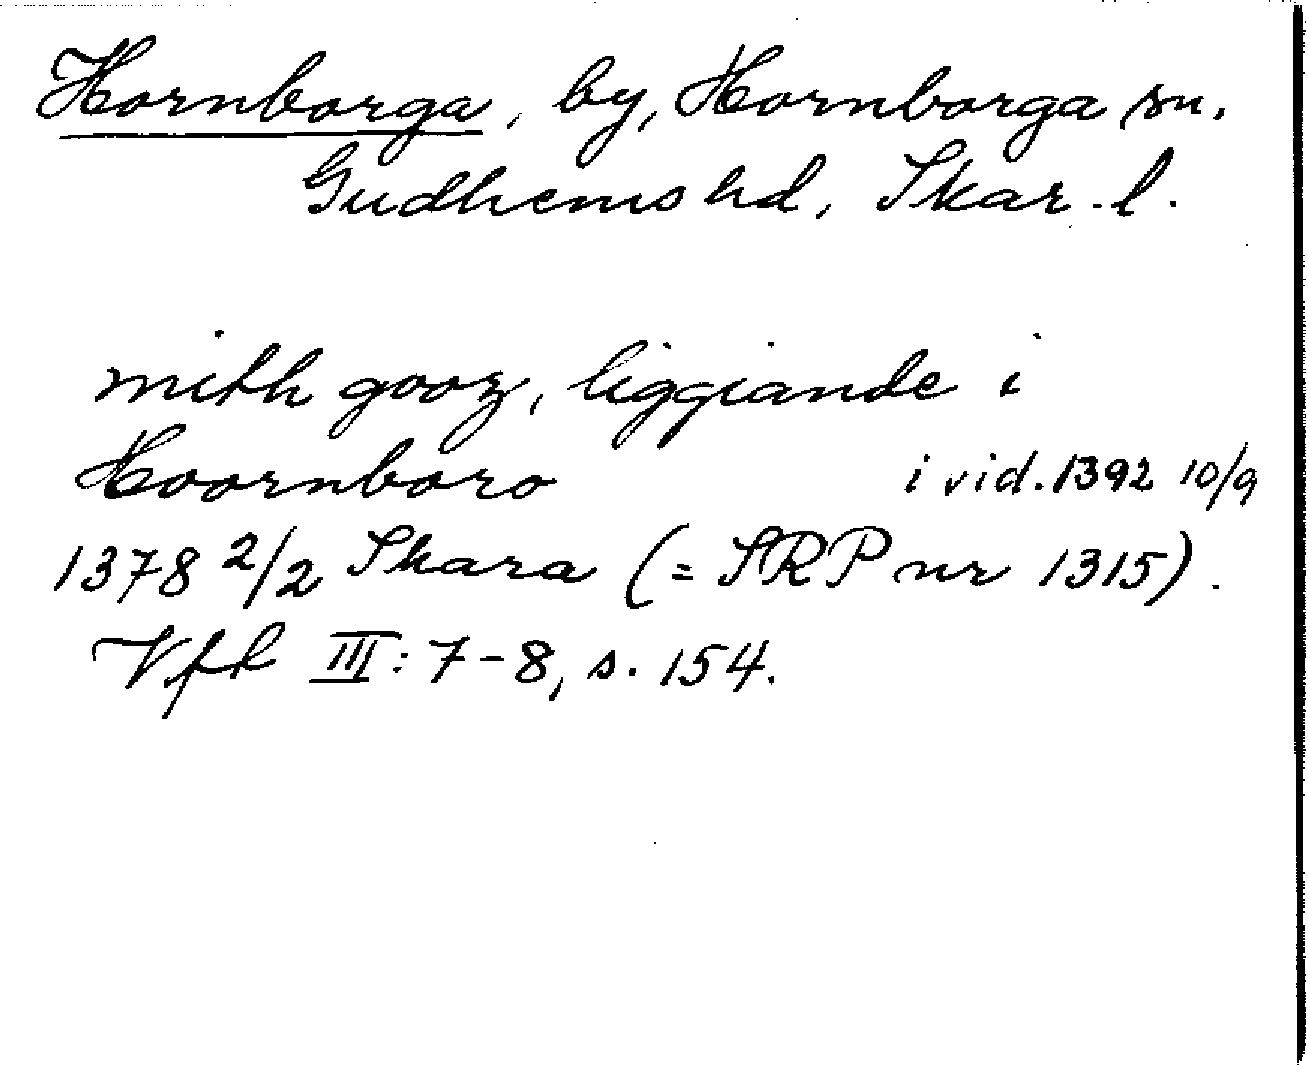 Hornborga, by, Hornborga sn.
Gudhems hd, Skar. l.
mith gooz, liggiande i
Hoornboro i vid. 1392 10/9
1378 2/2 Skara (= SRP nr 1315).
Vfk III: 7-8, s. 154.